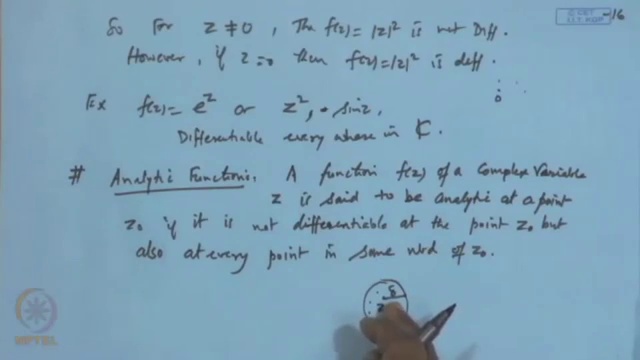 So For z ≠ 0, The f(z) = |z|² is not Diff.
However, if z = 0 then f(z) = |z|² is diff.
Ex f(z) = e^z or z², sin z,
Differentiable every where in ℂ.
# Analytic Function. A function f(z) of a Complex Variable
z is said to be analytic at a point
z₀ if it is not differentiable at the point z₀ but
also at every point in some nbd of z₀.
δ
0
NPTEL
I.I.T. KGP
-16